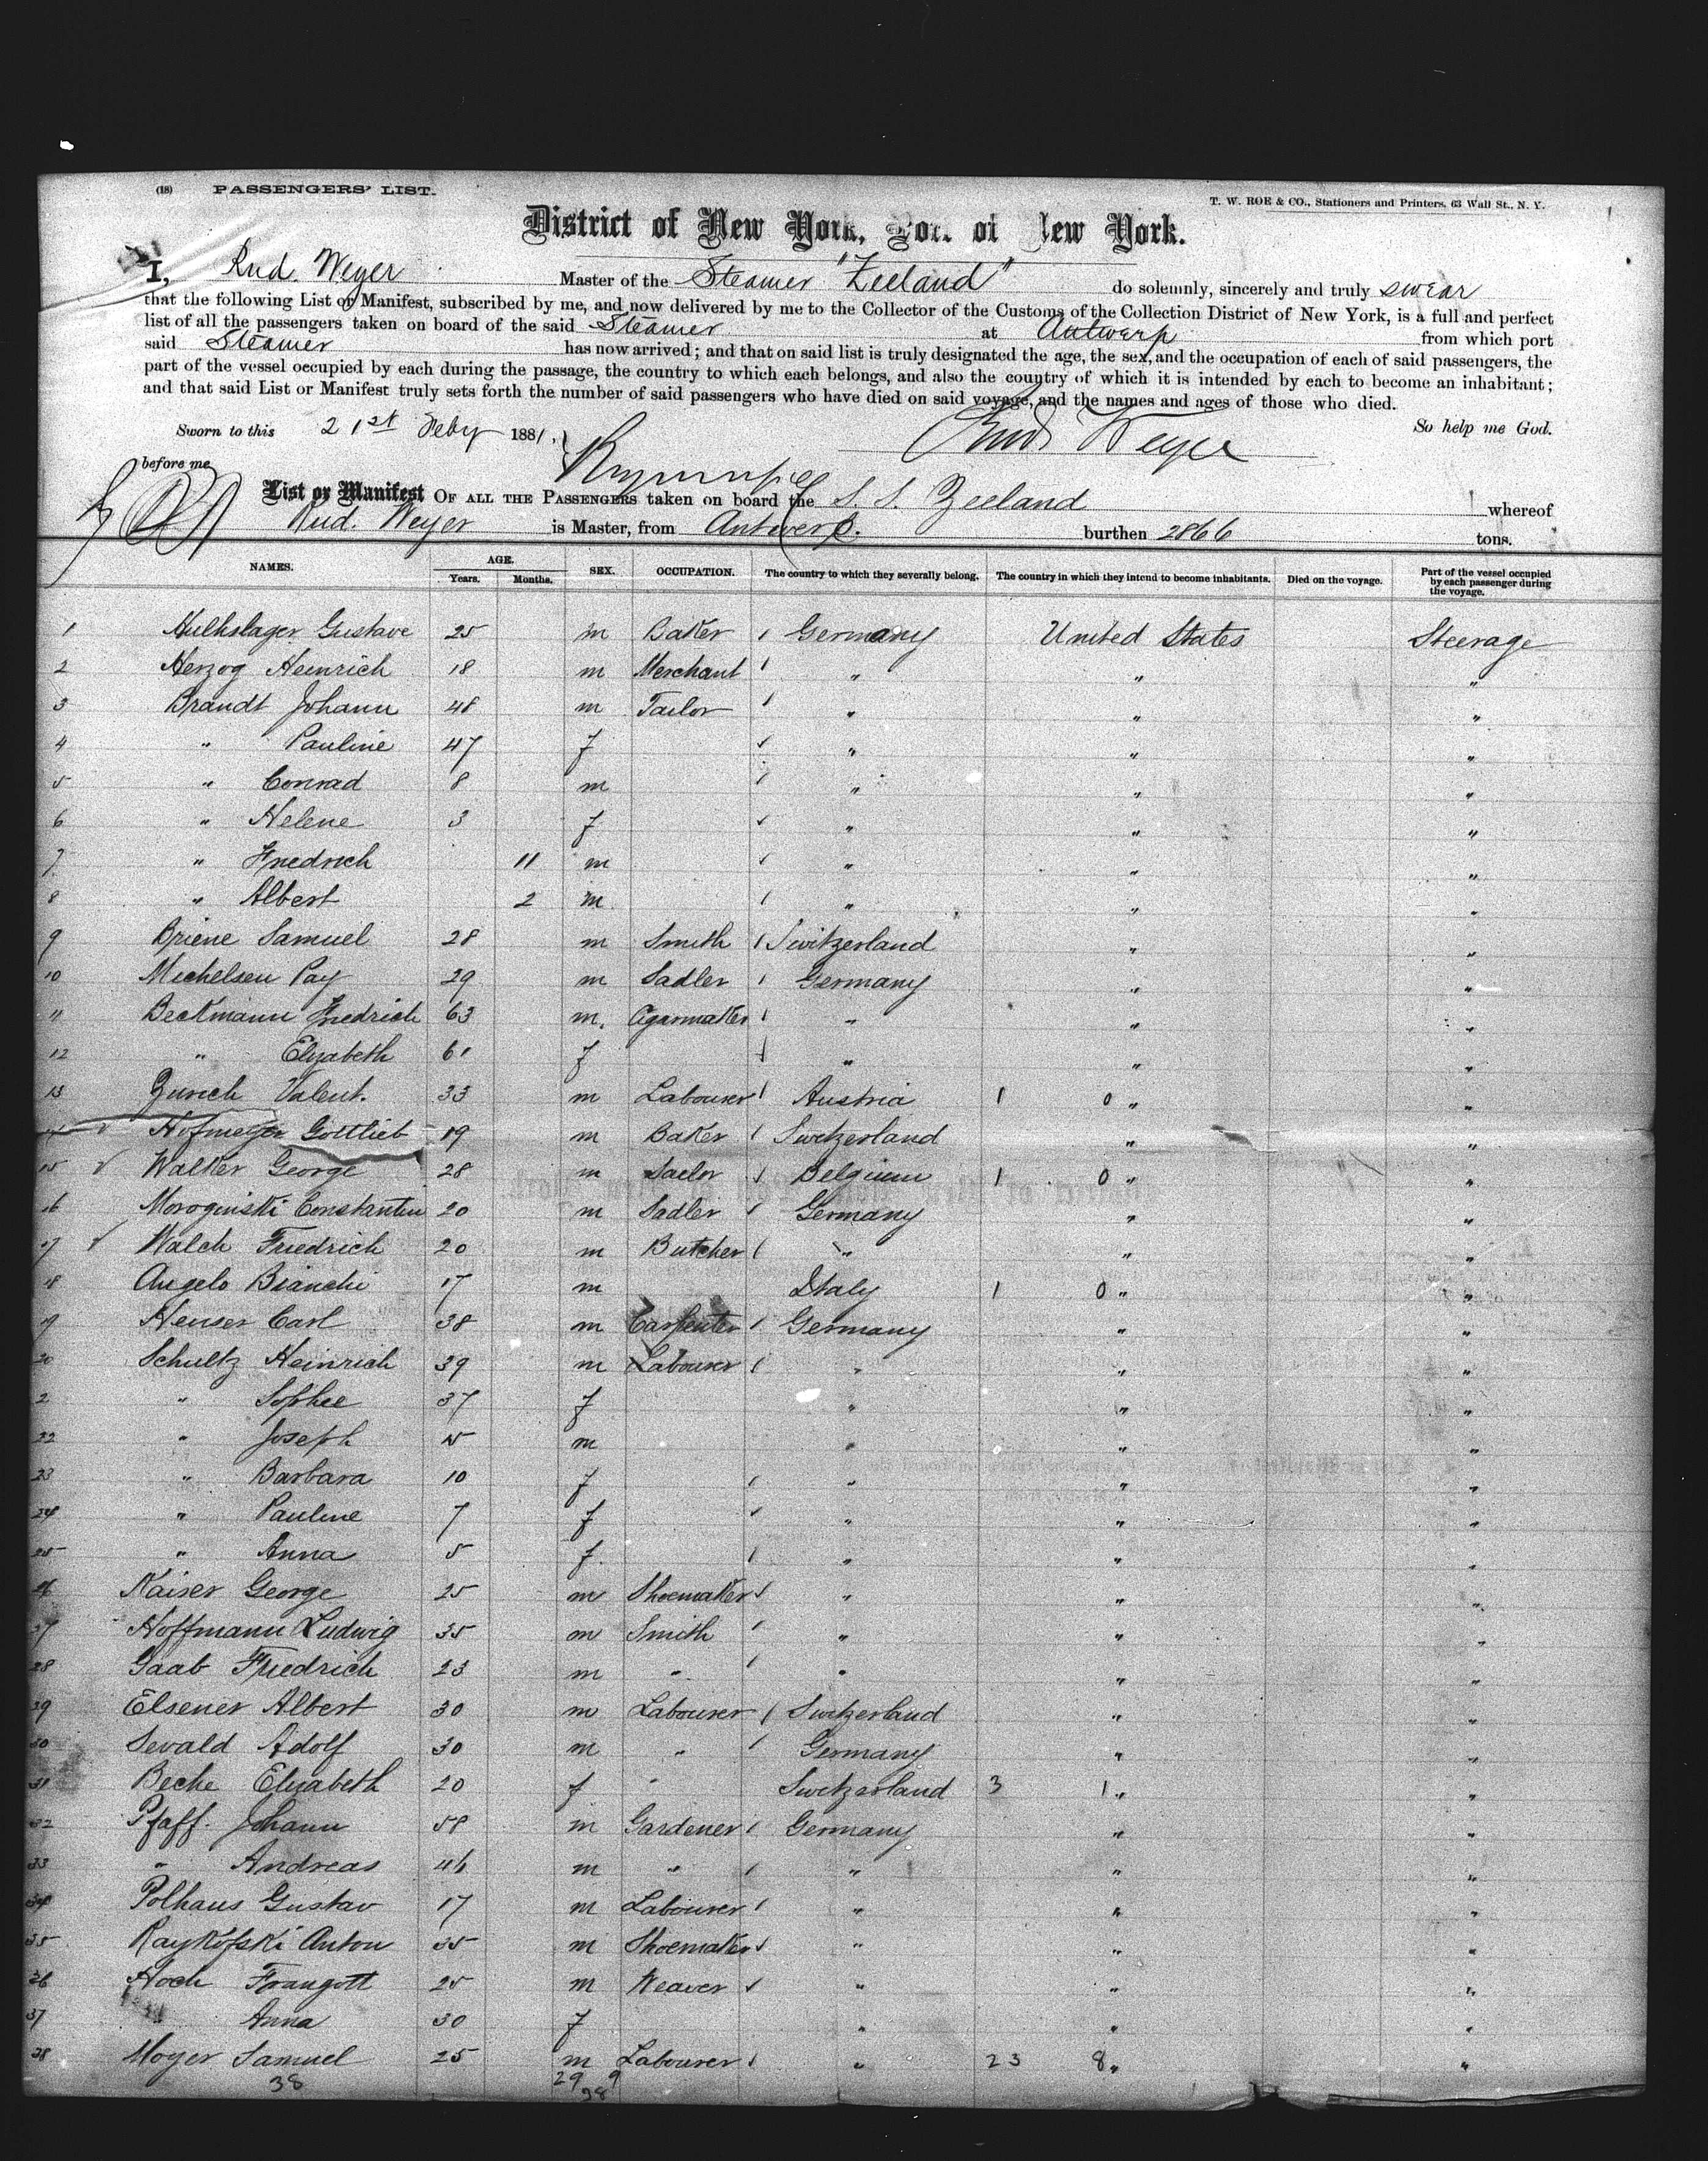 (18) PASSENGERS' LIST.
T. W. ROE & CO., Stationers and Printers, 63 Wall St., N. Y.
District of New York, Port of New York.
I, Rud. Weyer Master of the Steamer "Zeeland" do solemnly, sincerely and truly swear
that the following List or Manifest, subscribed by me, and now delivered by me to the Collector of the Customs of the Collection District of New York, is a full and perfect
list of all the passengers taken on board of the said Steamer at Antwerp from which port
said Steamer has now arrived; and that on said list is truly designated the age, the sex, and the occupation of each of said passengers, the
part of the vessel occupied by each during the passage, the country to which each belongs, and also the country of which it is intended by each to become an inhabitant;
and that said List or Manifest truly sets forth the number of said passengers who have died on said voyage, and the names and ages of those who died.
Sworn to this 21st Feby 1881, So help me God.
Rud Weyer
before me
List or Manifest OF ALL THE PASSENGERS taken on board the S. S. Zeeland whereof
Rud. Weyer is Master, from Antwerp. burthen 2866 tons.
NAMES. AGE. Years. Months. SEX. OCCUPATION. The country to which they severally belong. The country in which they intend to become inhabitants. Died on the voyage. Part of the vessel occupied by each passenger during the voyage.
1 Gustave 25 m Baker Germany United States Steerage
2 Herzog Heinrich 18 m Merchant " " "
3 Brandt Johann 48 m Tailor " " "
4 " Pauline 47 f " " "
5 " Conrad 8 m " " "
6 " Helene 3 f " " "
7 " Friedrich 11 m " " "
8 " Albert 2 m " " "
9 Briene Samuel 28 m Smith Switzerland " "
10 Michelsen Pay 29 m Sadler Germany " "
11 Beckmann Friedrich 63 m. Cigarmaker " " "
12 " Elizabeth 61 f " " "
13 Zurich Valent. 33 m Labourer Austria 1 0 " "
14 Hofmeyer Gottlieb 19 m Baker Switzerland " "
15 Walker George 28 m Sailor Belgium 1 0 " "
16 Constantin 20 m Sadler Germany " "
17 Walch Friedrich 20 m Butcher " " "
18 Angelo Bianchi 17 m Italy 1 0 " "
19 Henser Carl 38 m Carpenter Germany " "
20 Schultz Heinrich 39 m Labourer " " "
2 " Sophie 37 f " " "
22 " Joseph m " " "
23 " Barbara 10 f " " "
24 " Pauline 7 f " " "
25 " Anna 5 f. " " "
26 Kaiser George 25 m Shoemaker " " "
27 Hoffmann Ludwig 35 m Smith " " "
28 Gaab Friedrich 23 m " " " "
29 Elsener Albert 30 m Labourer Switzerland " "
30 Sewald Adolf 30 m " Germany " "
31 Beche Elizabeth 20 f " Switzerland 3 1 " "
32 Pfaff. Johann 58 m Gardener Germany " "
33 " Andreas 46 m " " " "
34 Polhaus Gustav 17 m Labourer " " "
35 Raykofski Anton 35 m Shoemaker " " "
36 Hoch Traugott 25 m Weaver " " "
37 " Anna 30 f " " "
38 Moyer Samuel 25 m Labourer " 23 8 " "
38 29 9
38